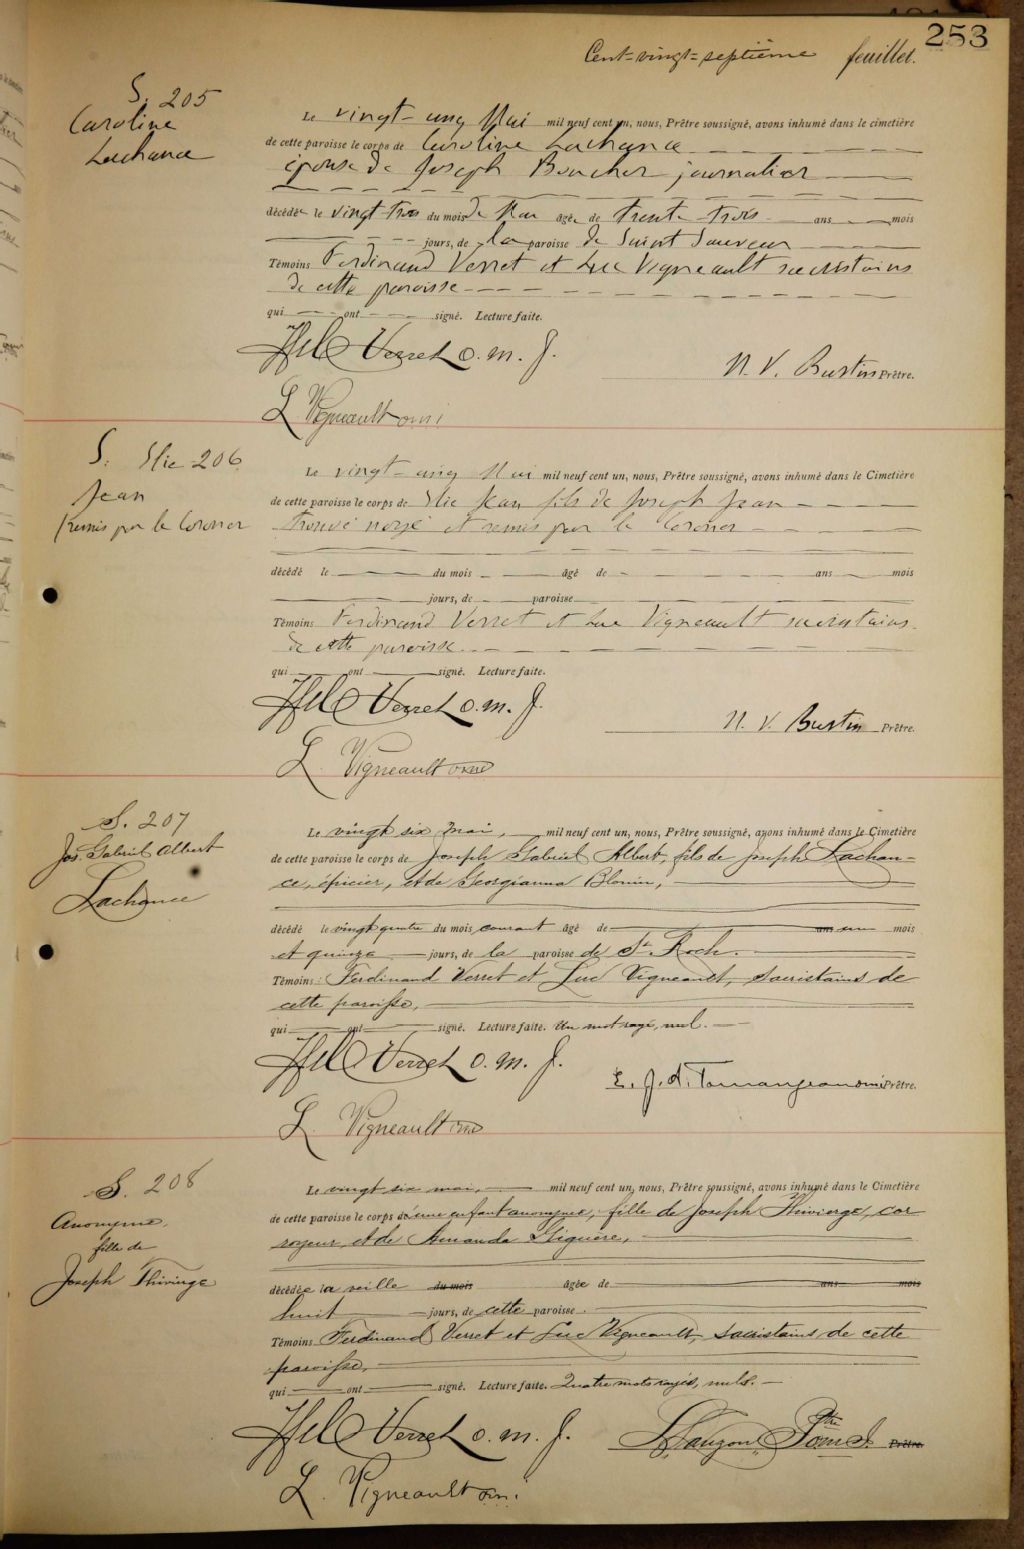 253
Cent-vingt-septième feuillet.
S. 205
Caroline
Lachance
Le vingt-cinq Mai mil neuf cent un, nous, Prêtre soussigné, avons inhumé dans le cimetière
de cette paroisse le corps de Caroline Lachance
épouse de Joseph Boucher journalier
décédée le vingt-trois du mois de Mai âgée de trente-trois ans mois
jours, de la paroisse de Saint Sauveur
Témoins Ferdinand Verret et Luc Vigneault sacristains
de cette paroisse
qui ont signé. Lecture faite.
Verret o. m. J.
N. V. Burtin Prêtre.
L. Vigneault omi
S. 206
Jean
remis par le Coroner
Le vingt-cinq Mai mil neuf cent un, nous, Prêtre soussigné, avons inhumé dans le Cimetière
de cette paroisse le corps de Jean fils de Joseph Jean
trouvé noyé et remis par le Coroner
décédé le du mois âgé de ans mois
jours, de paroisse
Témoins Ferdinand Verret et Luc Vigneault sacristains
de cette paroisse
qui ont signé. Lecture faite.
Verret o. m. J.
N. V. Burtin Prêtre.
L. Vigneault omi
S. 207
Jos. Gabriel Albert
Lachance
Le vingt six mai, mil neuf cent un, nous, Prêtre soussigné, avons inhumé dans le Cimetière
de cette paroisse le corps de Joseph Gabriel Albert, fils de Joseph Lachan-
ce, épicier, et de Georgianna Blouin,
décédé le vingt quatre du mois courant âgé de ans un mois
et quinze jours, de la paroisse de St. Roch.
Témoins: Ferdinand Verret et Luc Vigneault, sacristains de
cette paroisse,
qui ont signé. Lecture faite. Un mot rayé, nul.
Verret o. m. J.
Prêtre.
L. Vigneault omi
S. 208
Anonyme,
fille de
Joseph Thivierge
Le vingt six mai, mil neuf cent un, nous, Prêtre soussigné, avons inhumé dans le Cimetière
de cette paroisse le corps d'une enfant anonyme, fille de Joseph Thivierge, cor
royeur, et de Amanda Giguère,
décédée la veille du mois âgée de ans mois
huit jours, de cette paroisse.
Témoins Ferdinand Verret et Luc Vigneault, sacristains de cette
paroisse,
qui ont signé. Lecture faite. Quatre mots rayés, nuls.
Verret o. m. J.
Prêtre.
L. Vigneault omi